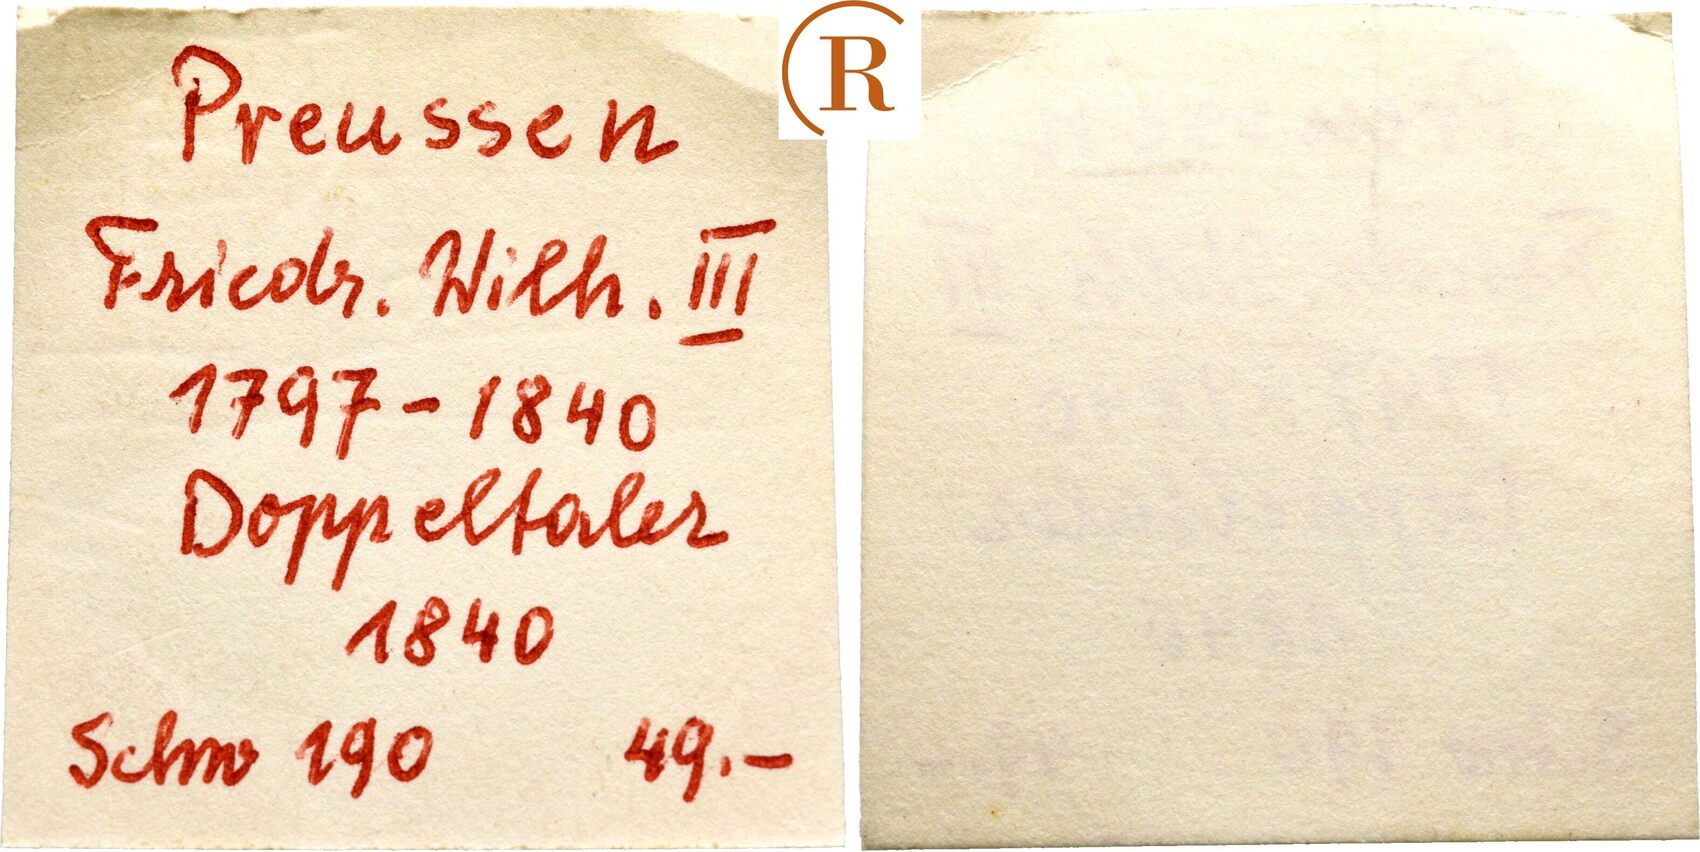 Preussen
Friedr. Wilh. III
1797-1840
Doppeltaler
1840
Schw 190 49.-
R